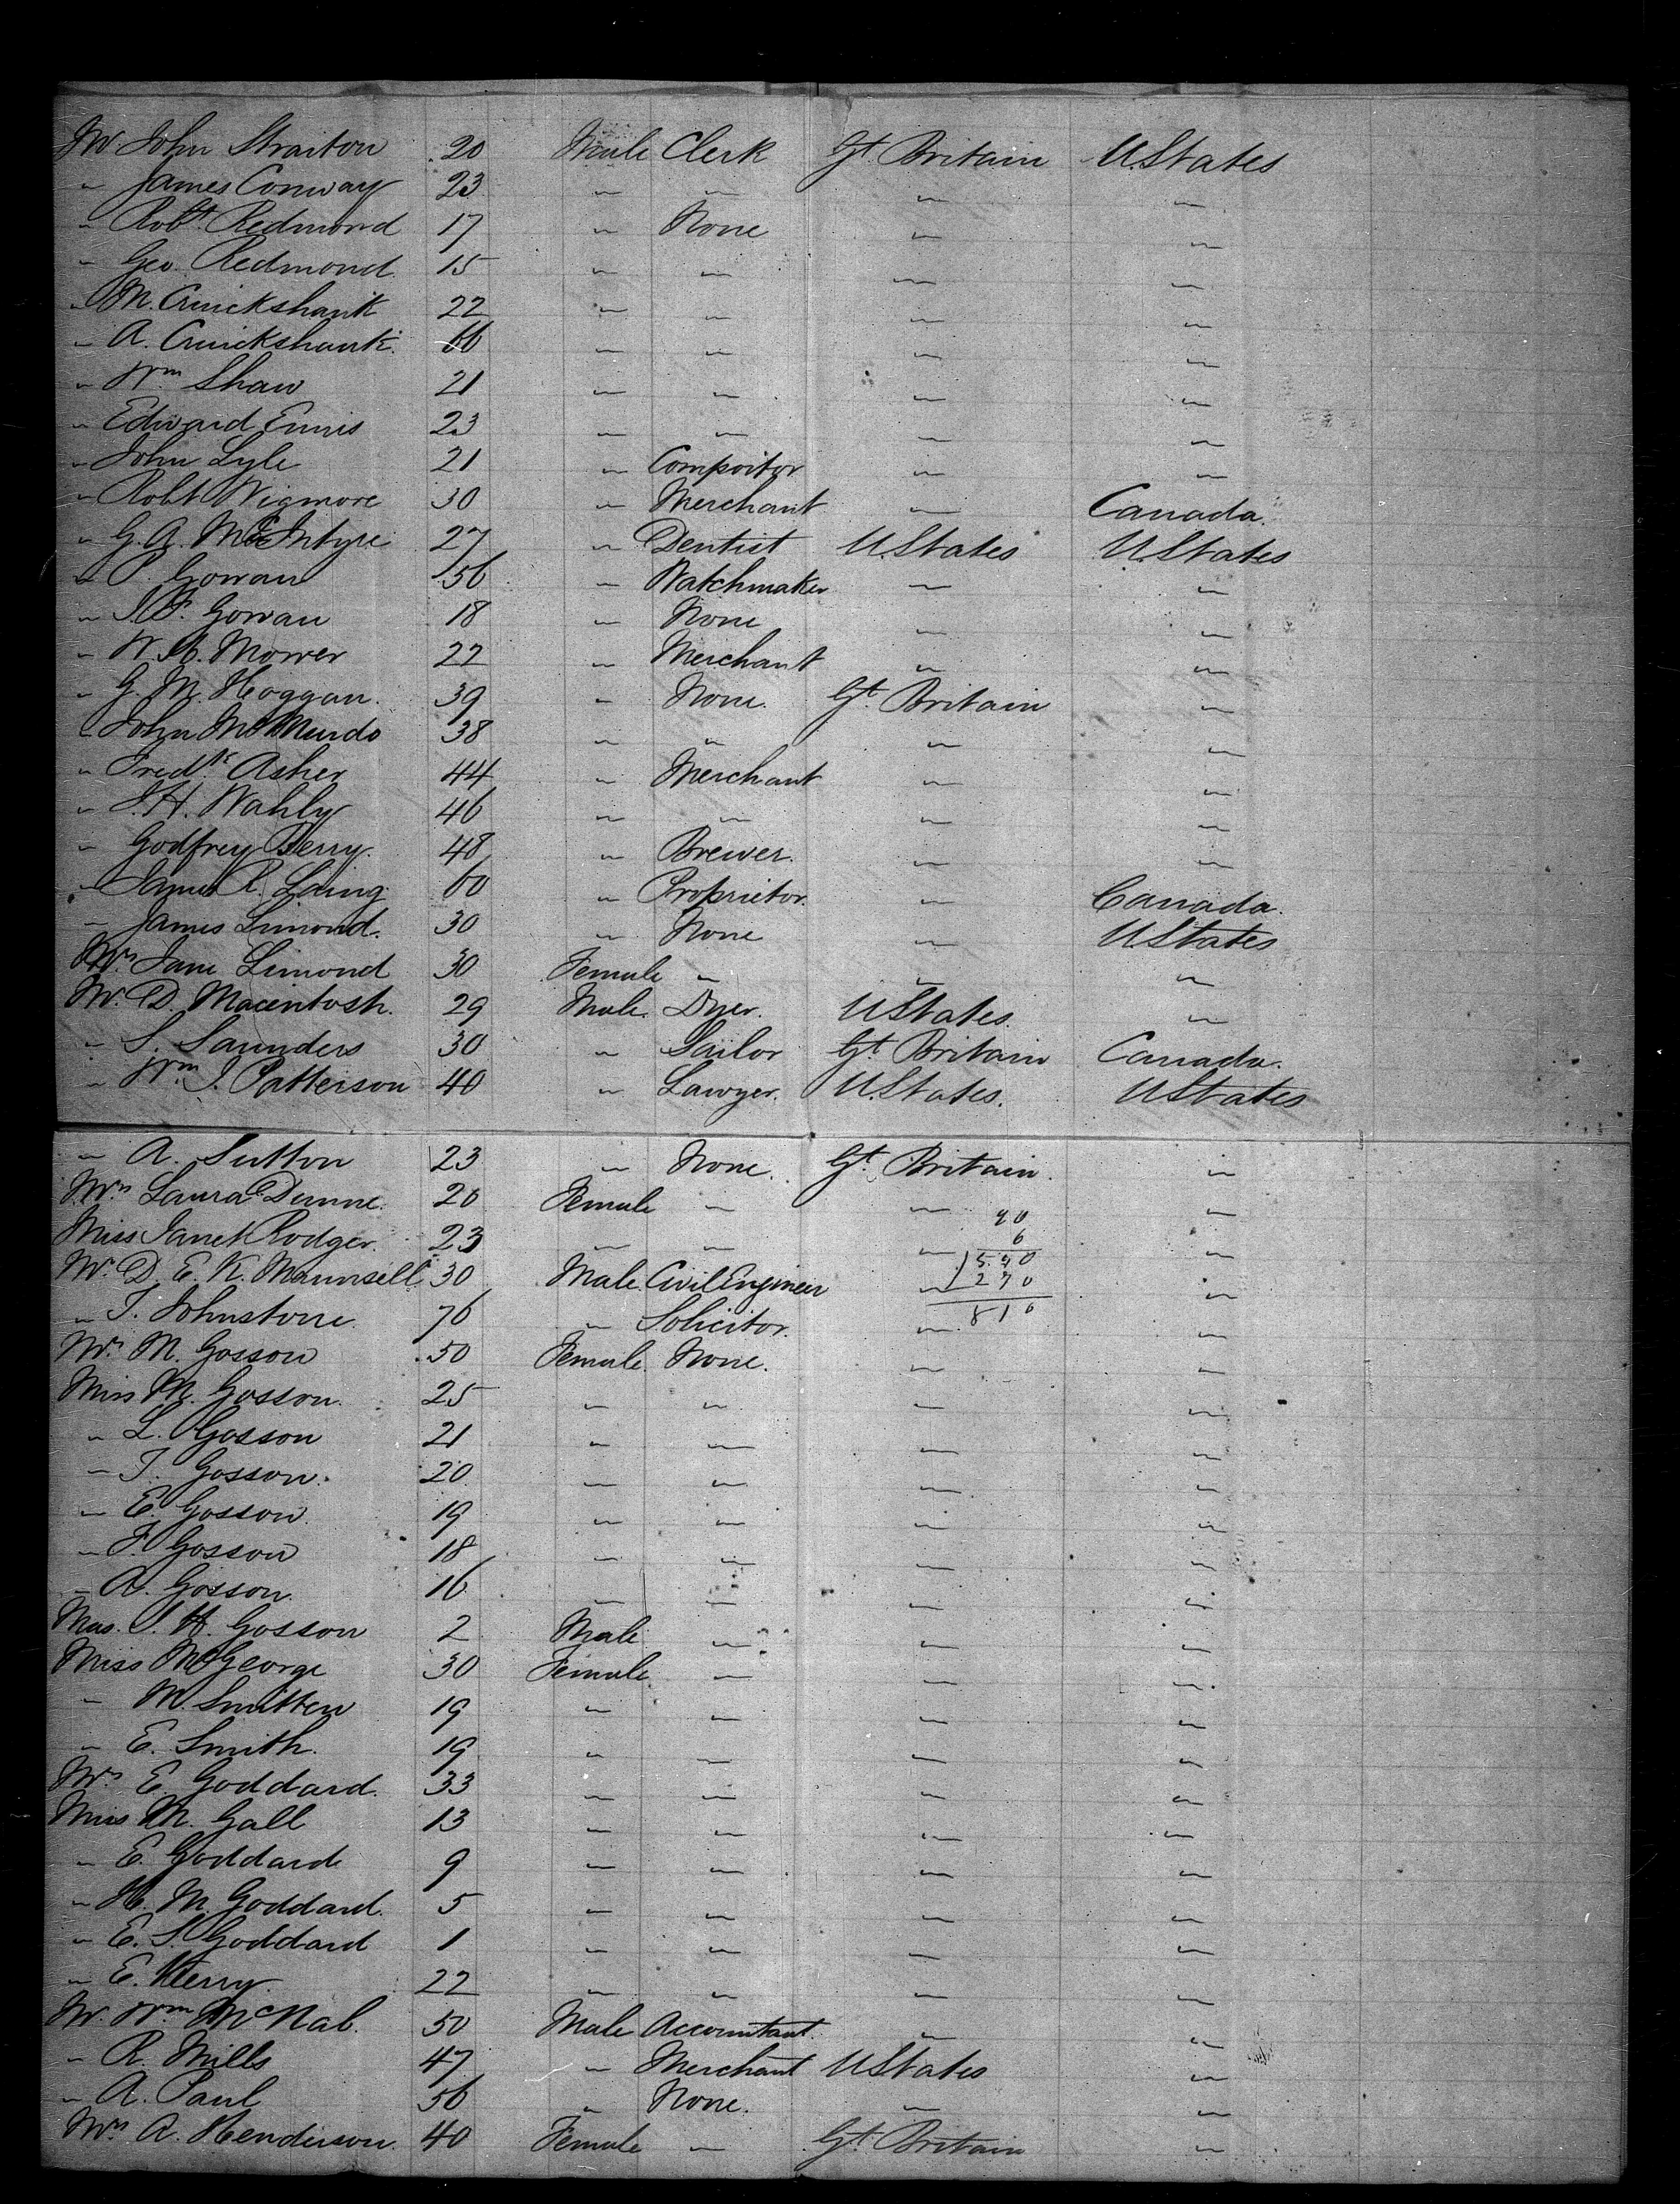 Mr John Straiton 20 Male Clerk Gt. Britain U.States
" James Conway 23 " " " "
" Robt. Redmond 17 " None " "
" Geo. Redmond. 15 " " " "
" M. Cruickshank 22 " " " "
" A. Cruickshank. " " " "
" Wm Shaw 21 " " " "
" Edward Ennis 23 " " " "
" John Lyle 21 " Compositor " "
" Robt Wigmore 30 " Merchant " Canada.
" G.A. McIntyre 27 " Dentist U.States U.States
" P. Gowan 56 " Watchmaker " "
" J.F. Gowan 18 " None " "
" W.H. Mower 22 " Merchant " "
" G.M. Hoggan. 39 " None. Gt. Britain "
" John McMurdo 38 " " " "
" Fredk. Asher 44 " Merchant " "
" J.H. Wahly 46 " " " "
" Godfrey Berry. 48 " Brewer. " "
" James R. Laing. 60 " Proprietor. " Canada.
" James Limond. 30 " None " U.States
Mrs Jane Limond 30 Female " " "
Mr. D. Macintosh. 29 Male. Dyer. U.States. "
" S. Saunders 30 " Sailor Gt. Britain Canada.
" Wm. J. Patterson 40 " Lawyer. U.States. U.States
" A. Sutton 23 " None. Gt. Britain. "
Mrs Laura Dunne. 20 Female " " "
90
Miss Janet Rodger. 23 " " " "
6
540
Mr. D.E.K. Maunsell 30 Male. Civil Engineer " "
270
" T. Johnstone. 76 " Solicitor. " "
810
Mrs. M. Gosson 50 Female. None. " "
Miss M. Gosson. 25 " " " "
" L. Gosson 21 " " " "
" T. Gosson. 20 " " " "
" E. Gosson. 19 " " " "
" F. Gosson 18 " " " "
" A. Gosson. 16 " " " "
Mas. J.H. Gosson 2 Male " " "
Miss McGeorge 30 Female " " "
" M. Smitten 19 " " " "
" E. Smith. 19 " " " "
Mrs E. Goddard. 33 " " " "
Miss M. Gall 13 " " " "
" E. Goddard 9 " " " "
" H.M. Goddard. 5 " " " "
" E.S. Goddard 1 " " " "
" E. 22 " " " "
Mr. Wm McNab. 50 Male Accountant. " "
" R. Mills 47 " Merchant U.States "
" A. Paul 56 " None. " "
Mrs A. Henderson. 40 Female " Gt. Britain "